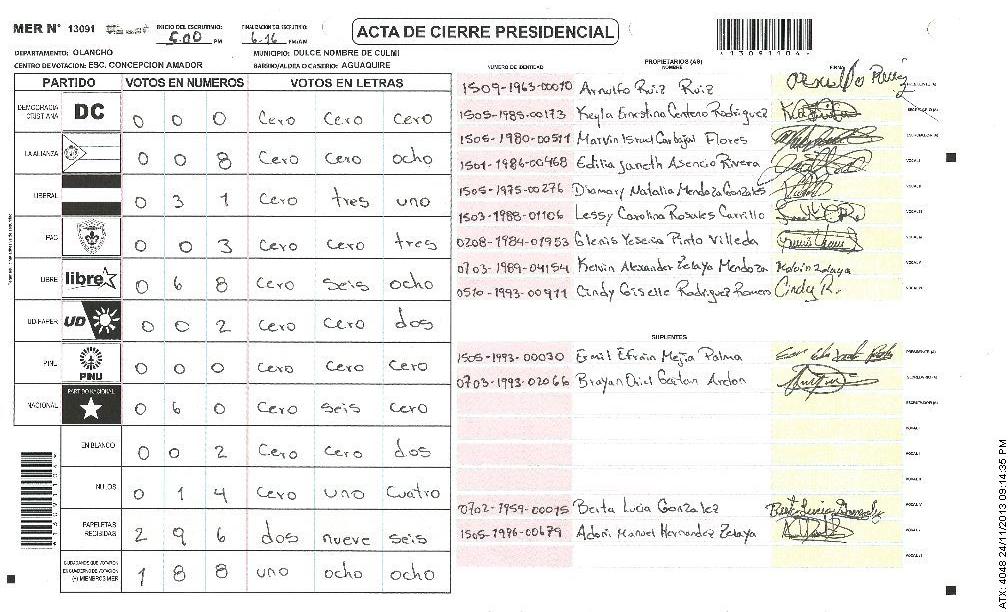 MER N° 13091 INICIO DEL ESCRUTINIO: 5:00 PM FINALIZACION DEL ESCRUTINIO: 6:16 PM/AM ACTA DE CIERRE PRESIDENCIAL
-13091104-
DEPARTAMENTO: OLANCHO MUNICIPIO: DULCE NOMBRE DE CULMI
CENTRO DE VOTACION: ESC. CONCEPCION AMADOR BARRIO/ALDEA O CASERIO: AGUAQUIRE
PARTIDO VOTOS EN NUMEROS VOTOS EN LETRAS
DEMOCRACIA CRISTIANA DC 0 0 0 Cero Cero Cero
LA ALIANZA 0 0 8 Cero Cero ocho
LIBERAL 0 3 1 Cero tres uno
PAC 0 0 3 Cero Cero tres
LIBRE libre 0 6 8 Cero Seis ocho
UD/FAPER UD 0 0 2 Cero Cero dos
PINU PINU 0 0 0 Cero Cero Cero
NACIONAL PARTIDO NACIONAL 0 6 0 Cero seis Cero
EN BLANCO 0 0 2 Cero Cero dos
NULOS 0 1 4 Cero uno Cuatro
PAPELETAS RECIBIDAS 2 9 6 dos nueve seis
CIUDADANOS QUE VOTARON EN CUADERNO DE VOTACION (+) MIEMBROS MER 1 8 8 uno ocho ocho
PROPIETARIOS (AS)
NUMERO DE IDENTIDAD NOMBRE FIRMA
1509-1963-00070 Arnulfo Ruiz Ruiz PRESIDENTE (A)
1505-1985-00173 Keyla Ernestina Centeno Rodriguez SECRETARIO (A)
1505-1980-00511 Marvin Isrrael Carbajal Flores ESCRUTADOR (A)
1501-1986-00468 Edilia Janeth Asencio Rivera VOCAL I
1505-1975-00276 Diomary Natalia Mendoza Gonzales VOCAL II
1503-1988-01106 Lessy Carolina Rosales Carrillo VOCAL III
0208-1984-01953 Glenis Yesenia Pinto Villeda VOCAL IV
0703-1989-04154 Kelvin Alexander Zelaya Mendoza Kelvin Zelaya VOCAL V
0510-1993-00911 Cindy Giselle Rodriguez Romero Cindy R. VOCAL VI
SUPLENTES
1505-1993-00030 Ermil Efrain Mejia Palma PRESIDENTE (A)
0703-1993-02066 Brayan Ariel Gaitan Ardon SECRETARIO (A)
ESCRUTADOR (A)
VOCAL I
VOCAL II
VOCAL III
0702-1959-00075 Berta Lucia Gonzalez VOCAL IV
1505-1976-00679 Adori Manuel Hernandez Zelaya VOCAL V
VOCAL VI
ATX: 4048 24/11/2013 09:14:35 PM